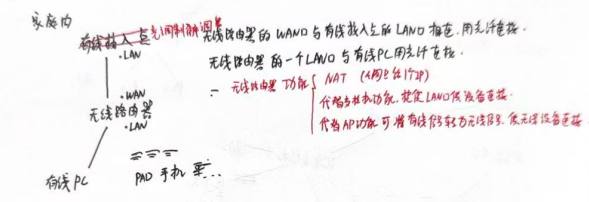 家庭内
有线接入点 光调制解调器 无线路由器的WAN口与有线接入点的LAN口相连,用光纤连接.
·LAN 无线路由器的一个LAN口与有线PC用光纤连接.
无线路由器功能 NAT
·WAN 代替交换机功能,提供LAN口供设备连接.
无线路由器
·LAN 代替AP功能 可将有线信号转为无线信号,供无线设备连接
有线PC PAD 手机